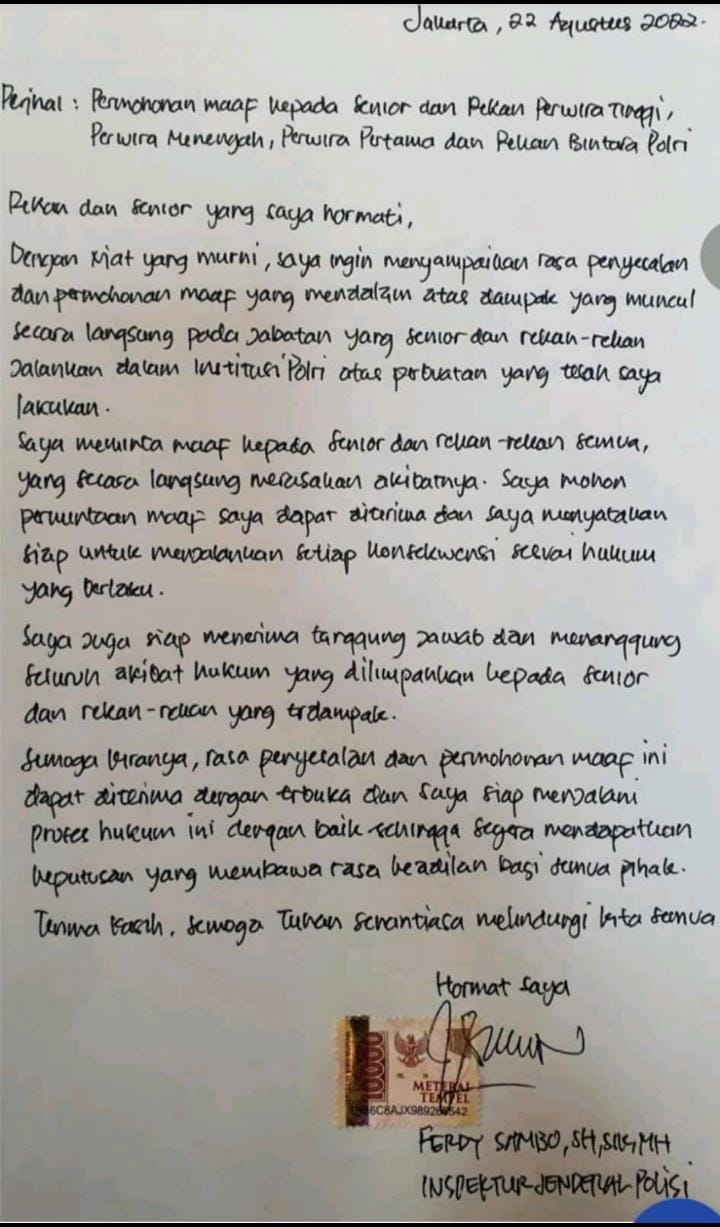 Jakarta, 22 Agustus 2022.
Perihal : Permohonan maaf kepada Senior dan Rekan Perwira Tinggi,
Perwira Menengah, Perwira Pertama dan Rekan Bintara Polri
Rekan dan Senior yang saya hormati,
Dengan niat yang murni, saya ingin menyampaikan rasa penyesalan
dan permohonan maaf yang mendalam atas dampak yang muncul
secara langsung pada jabatan yang senior dan rekan-rekan
jalankan dalam institusi Polri atas perbuatan yang telah saya
lakukan.
Saya meminta maaf kepada senior dan rekan-rekan semua,
yang secara langsung merasakan akibatnya. Saya mohon
permintaan maaf saya dapat diterima dan saya menyatakan
siap untuk menjalankan setiap konsekwensi sesuai hukum
yang berlaku.
Saya juga siap menerima tanggung jawab dan menanggung
seluruh akibat hukum yang dilimpahkan kepada senior
dan rekan-rekan yang terdampak.
Semoga kiranya, rasa penyesalan dan permohonan maaf ini
dapat diterima dengan terbuka dan saya siap menjalani
proses hukum ini dengan baik sehingga segera mendapatkan
keputusan yang membawa rasa keadilan bagi semua pihak.
Terima kasih, semoga Tuhan senantiasa melindungi kita semua
Hormat saya
10000
METERAI
TEMPEL
FERDY SAMBO, SH, SIK, MH
INSPEKTUR JENDERAL POLISI